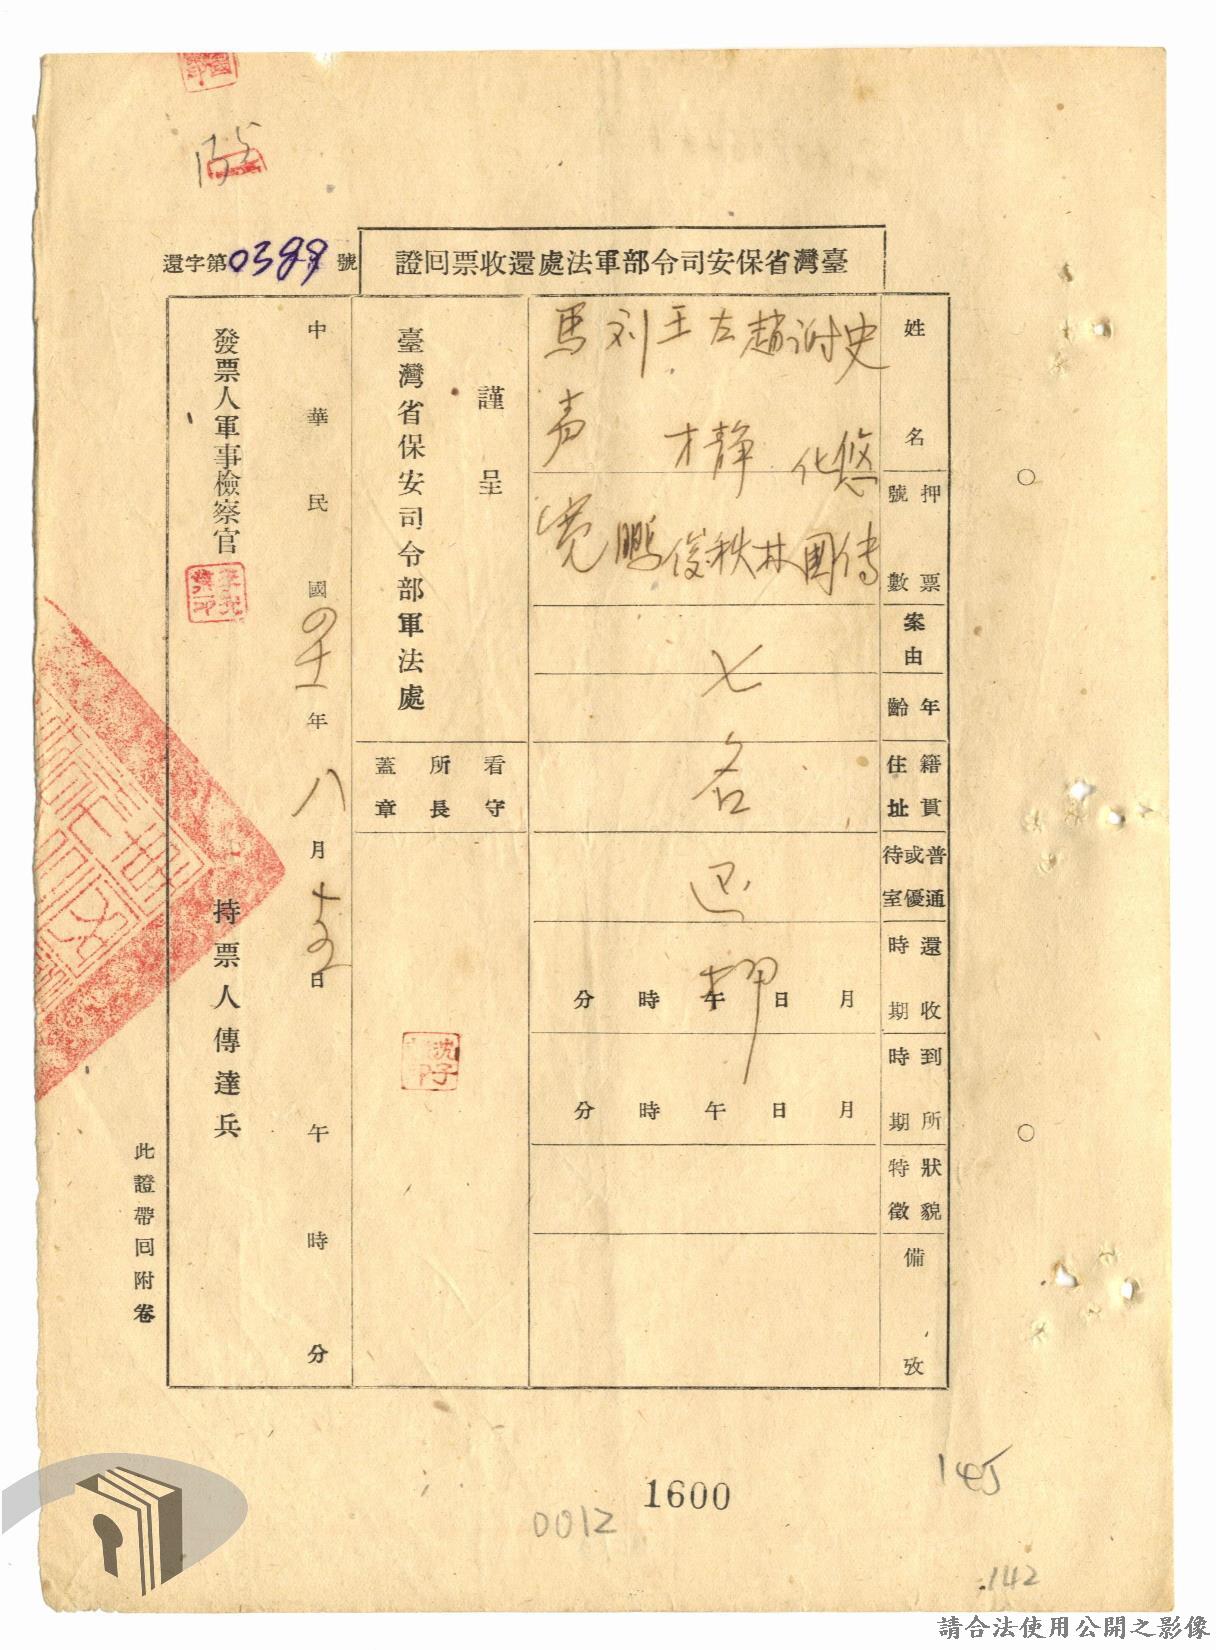 臺灣省保安司令部軍法處還收票回證
還字第0399號
姓名
押票號數
案由
年齡
籍貫住址
普通或優待室
還收時期
到所時期
狀貌特徵
備攷
史悠傳
謝化國
趙林
左靜秋
王才俊
刘鵬
馬壽寬
七名还押
月日午時分
月日午時分
謹呈
臺灣省保安司令部軍法處
看守所長蓋章
中華民國四十一年八月十五日午時分
發票人軍事檢察官
持票人傳達兵
此證帶回附卷
1600
0012
145
142
請合法使用公開之影像